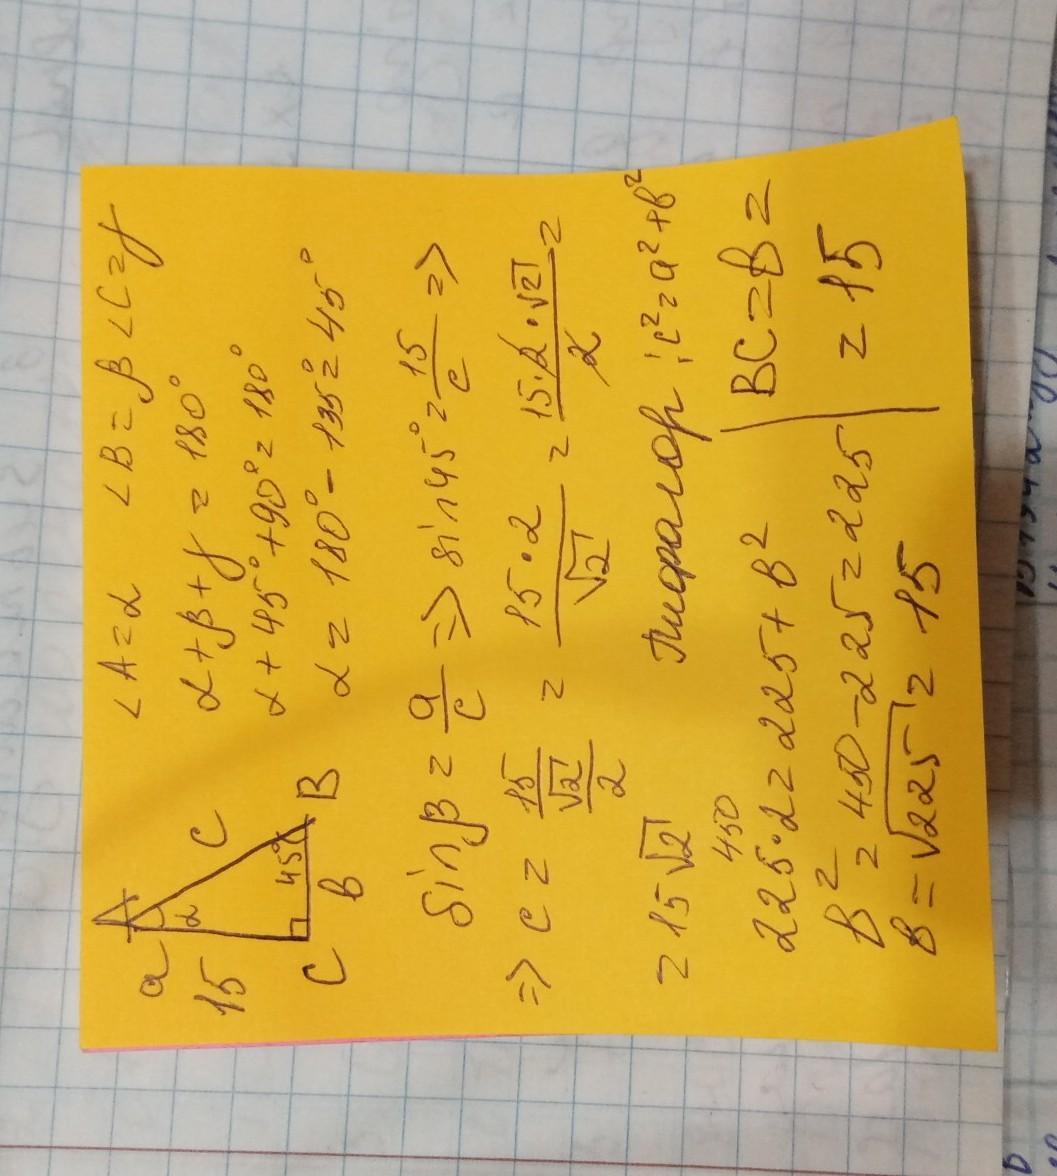 ∠A=α ∠B=β ∠C=γ
α+β+γ=180°
α+45°+90°=180°
α=180°-135°=45°
A
a
α
c
15
45°
C
b
B
sinβ = a/c => sin45° = 15/c =>
=> c = 15/(√2/2) = 15·2/√2 = 15·2·√2/2 =
= 15√2
Пифагор: c²=a²+b²
450
225·2=225+b²
b²=450-225=225
b=√225=15
BC=b=
=15